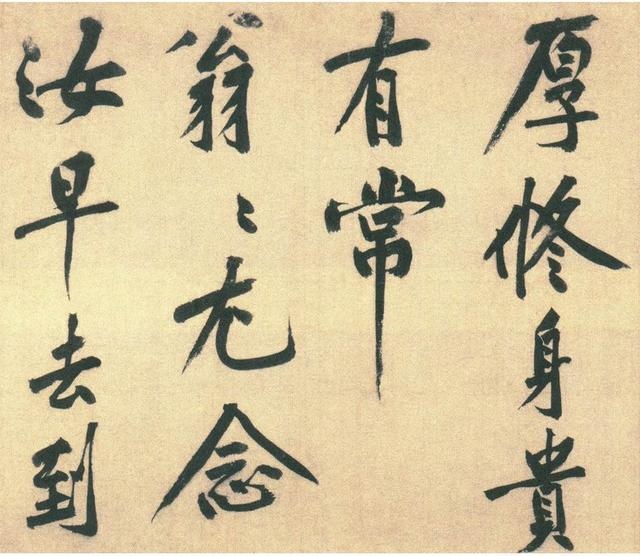 厚修身貴
有常
翁〻尤念
汝早去到